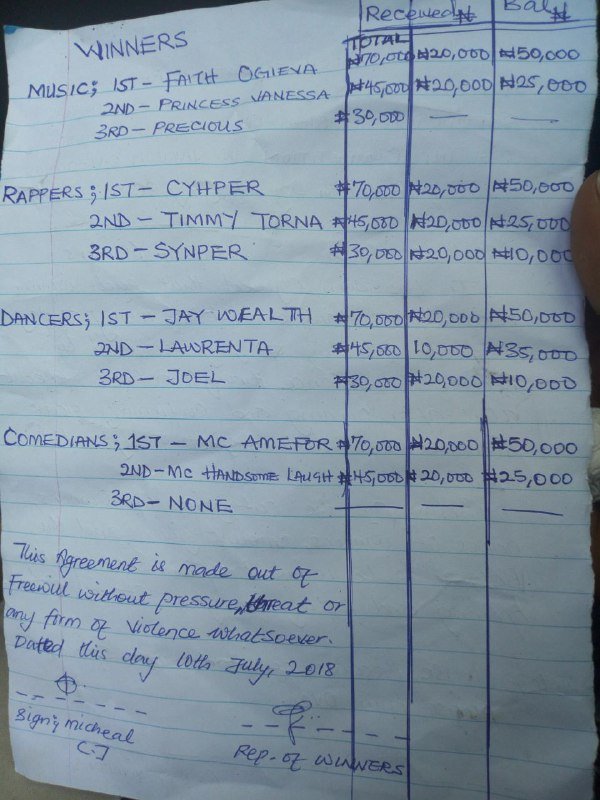 Received ₦ Bal ₦
WINNERS TOTAL
MUSIC; 1ST - FAITH OGIEVA ₦70,000 ₦20,000 ₦50,000
2ND - PRINCESS VANESSA ₦45,000 ₦20,000 ₦25,000
3RD - PRECIOUS ₦30,000 — —
RAPPERS; 1ST - CYHPER ₦70,000 ₦20,000 ₦50,000
2ND - TIMMY TORNA ₦45,000 ₦20,000 ₦25,000
3RD - SYNPER ₦30,000 ₦20,000 ₦10,000
DANCERS; 1ST - JAY WEALTH ₦70,000 ₦20,000 ₦50,000
2ND - LAWRENTA ₦45,000 10,000 ₦35,000
3RD - JOEL ₦30,000 ₦20,000 ₦10,000
COMEDIANS; 1ST - MC AMEFOR ₦70,000 ₦20,000 ₦50,000
2ND - MC HANDSOME LAUGH ₦45,000 ₦20,000 ₦25,000
3RD - NONE — — —
This Agreement is made out of
Freewill without pressure, threat or
any firm of violence whatsoever.
Dated this day 10th July, 2018
Sign; Micheal
Rep. of WINNERS